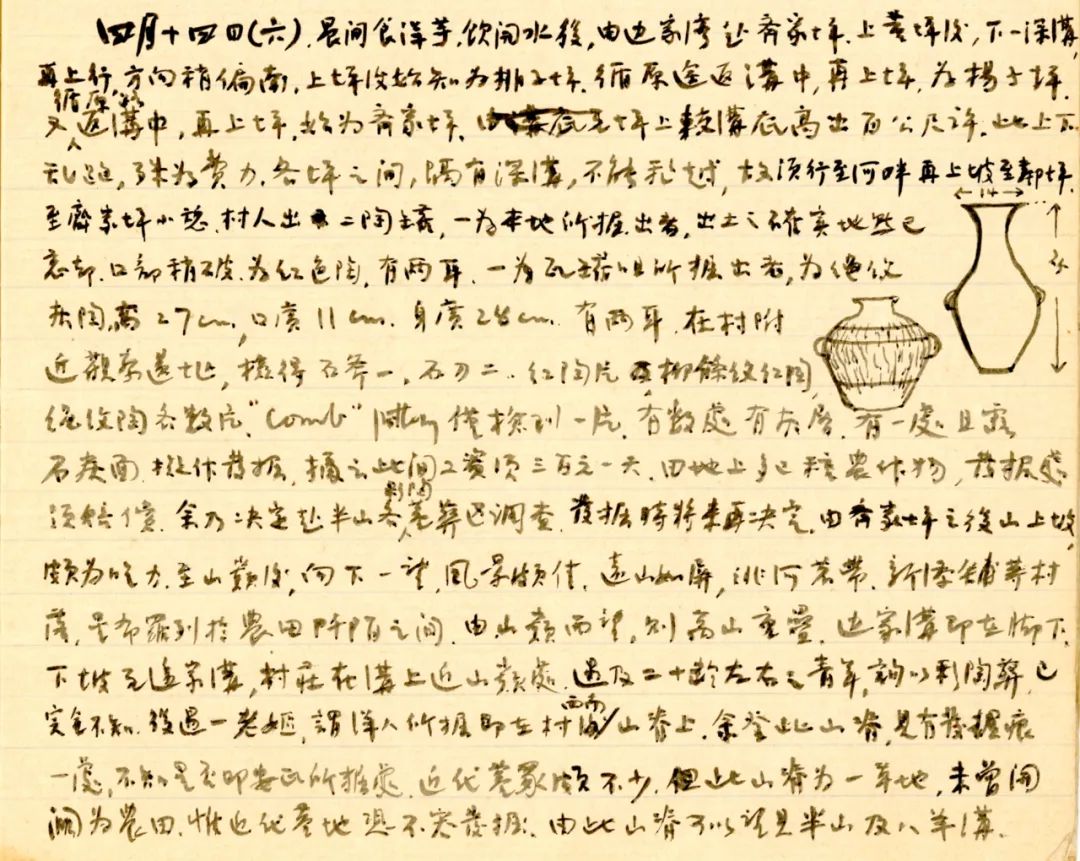 四月十四日(六).晨间食洋芋,饮開水後,由边家湾赴齐家坪.上黄坪後,下一深溝,
再上行,方向稍偏南,上坪後始知为排子坪.循原途返溝中,再上坪,为楊子坪.
又循原路返溝中,再上坪,始为齐家坪.坪上較溝底高出百公尺许.此上下
乱跑,殊为費力.各坪之间,隔有深溝,不能飛越,故须行至河畔再上坡至都坪.
至齊家坪小憩.村人出二陶罐,一为本地所掘出者,出土之確实地点已
14
忘却.口部稍破.为红色陶,有两耳.一为瓦罐咀所掘出者,为绳纹
灰陶,高27cm,口廣11cm.身廣28cm.有两耳.在村附
近觀察遗址,撿得石斧一,石刀二.红陶片柳條纹红陶,
绳纹陶各数片,"Comb" pottery 僅撿到一片.有数處有灰層.有一處且露
石灰面.擬作發掘.据云此间工資须三百元一天.田地上多已種農作物,發掘處
须賠償.余乃决定赴半山各彩陶墓葬区调查.發掘時將来再决定.由齐家坪之後山上坡,
颇为吃力.至山巔後,向下一望,風景颇佳.遠山如屏,洮河若带.新添铺等村
落,星布羅列於農田阡陌之间.由山巔西望,则高山重疊.边家溝即在脚下.
下坡至边家溝,村莊在溝上近山巔處.遇及二十龄左右之青年,詢以彩陶葬,已
完全不知.後遇一老妪,謂洋人所掘即在村西南山脊上.余登此山脊,見有發掘痕
一處,不知是否即安氏所掘處.近代墓冢颇不少.但此山脊为一草地,未曾開
闢为農田.惟近代墓地恐不容發掘.由此山脊可以望見半山及八羊溝.